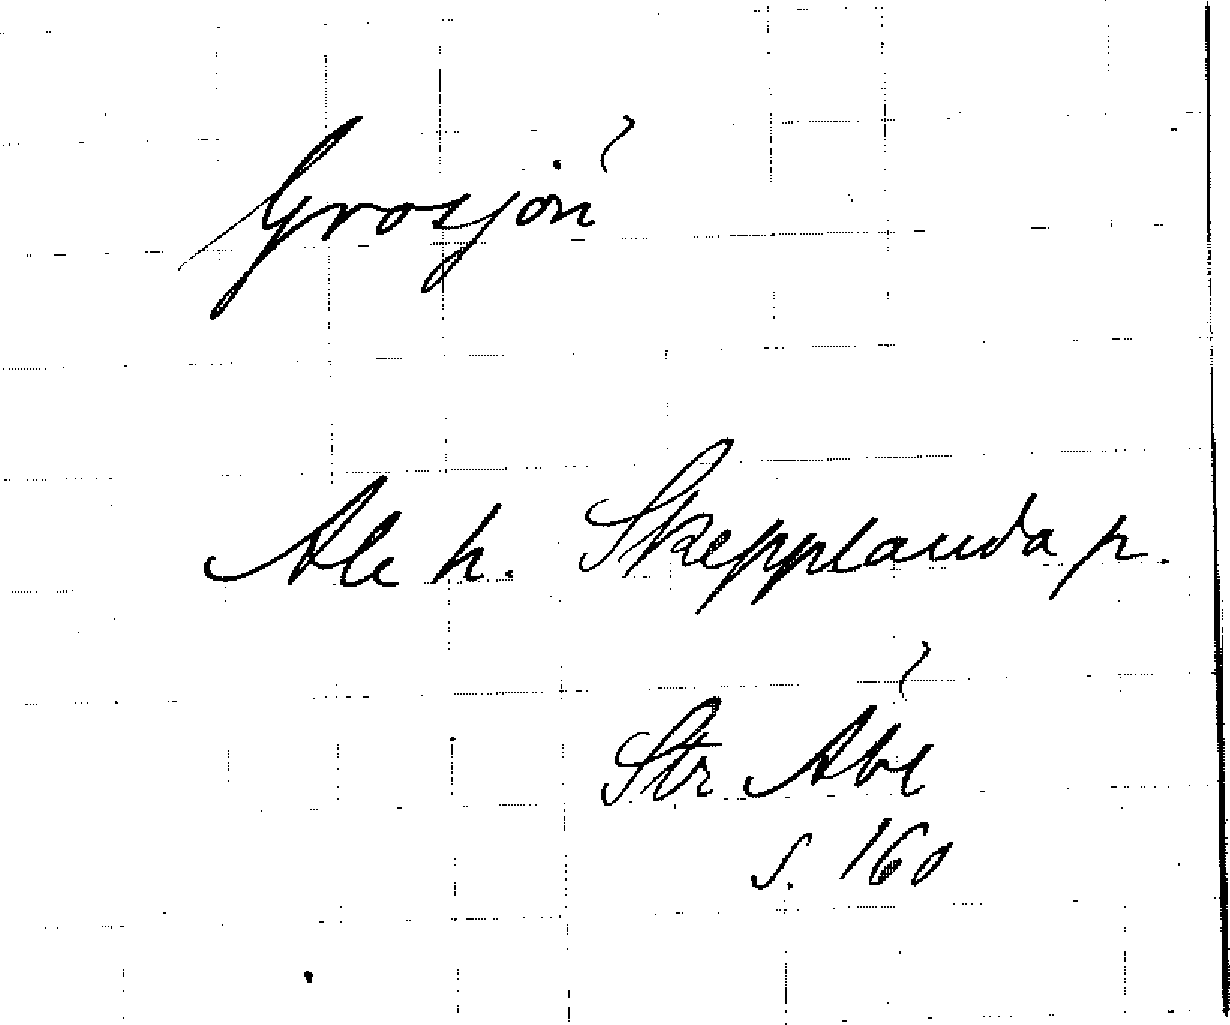 Grosjön
Ale h. Skepplanda p.
Str Abl
s. 160